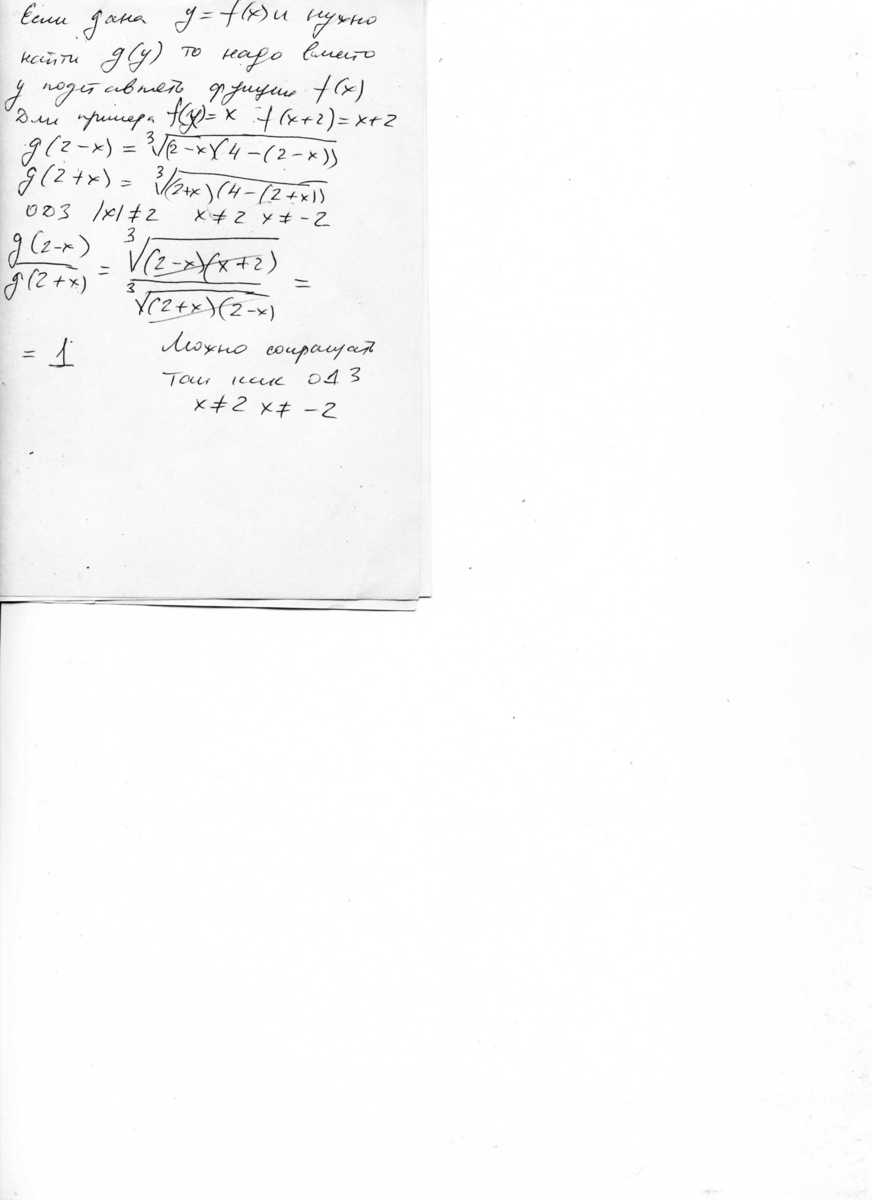 Если дана y = f(x) и нужно
найти g(y) то надо вместо
y подставлять функцию f(x)
Для примера f(x) = x f(x+2) = x+2
g(2-x) = ∛((2-x)(4-(2-x)))
g(2+x) = ∛((2+x)(4-(2+x)))
ОДЗ |x| ≠ 2 x ≠ 2 x ≠ -2
g(2-x)/g(2+x) = ∛((2-x)(x+2))/∛((2+x)(2-x)) =
= 1 Можно сокращать
так как ОДЗ
x ≠ 2 x ≠ -2